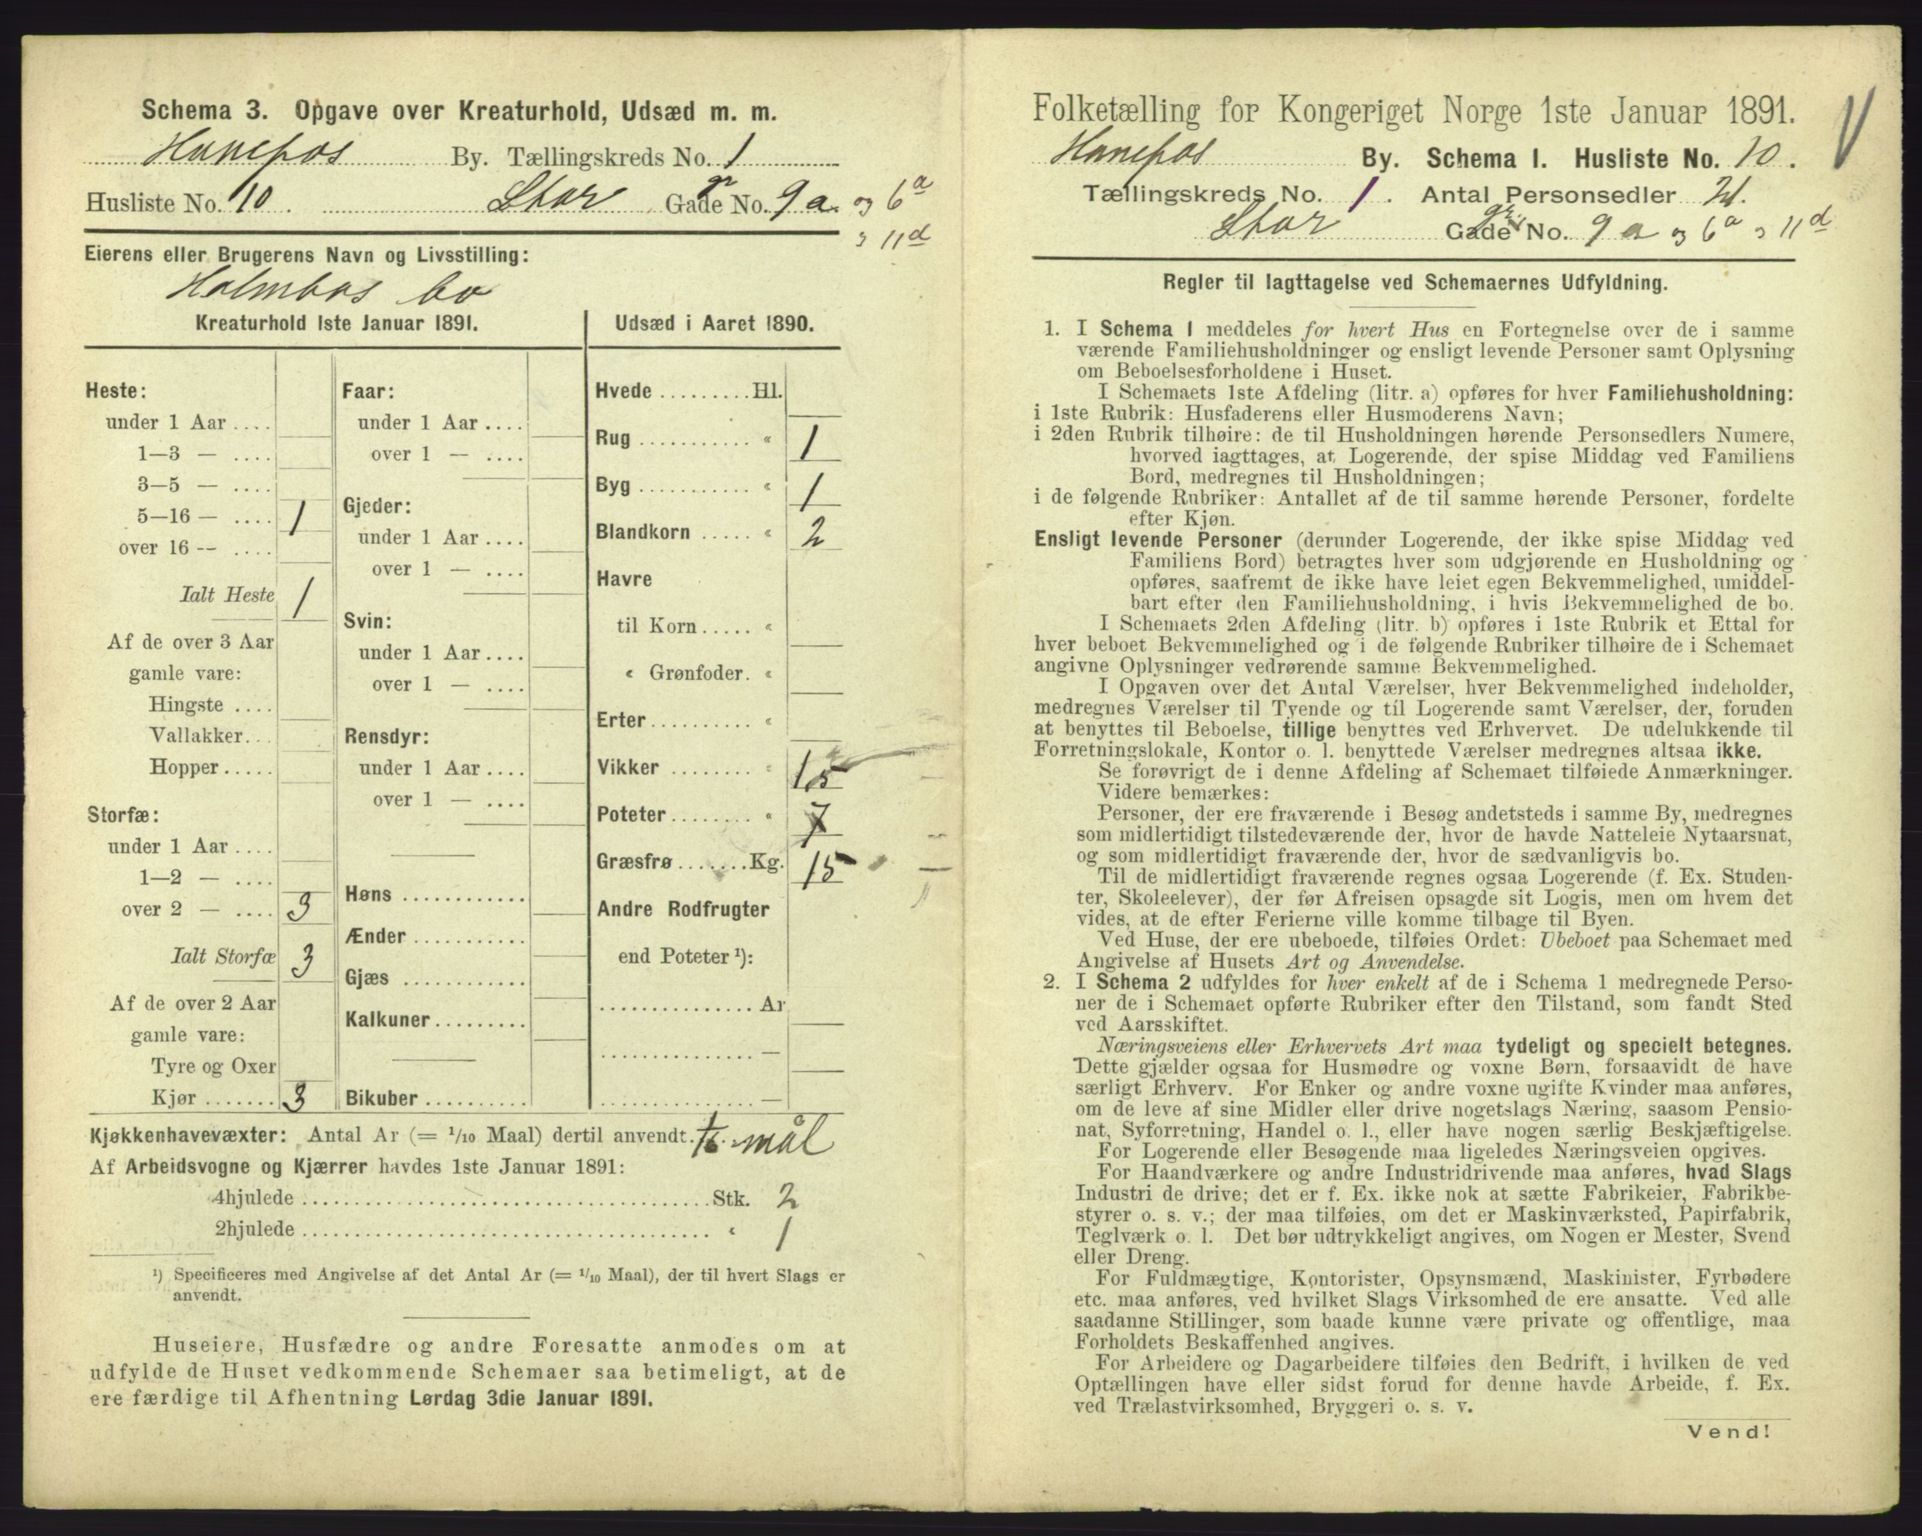 Schema 3. Opgave over Kreaturhold, Udsæd m. m.
By. Tællingskreds No. 1
Husliste No. 10. Stor Gade No. 9 a. og 6a
11d
Eierens eller Brugerens Navn og Livsstilling:
Holmboes bo
Kreaturhold 1ste Januar 1891.
Heste:
under 1 Aar ....
1—3 — ....
3—5 — ....
5—16 — .... 1
over 16 — ....
Ialt Heste 1
Af de over 3 Aar
gamle vare:
Hingste ....
Vallakker...
Hopper .....
Storfæ:
under 1 Aar ....
1—2 — ....
over 2 — .... 3
Ialt Storfæ 3
Af de over 2 Aar
gamle vare:
Tyre og Oxer
Kjør ....... 3
Faar:
under 1 Aar ....
over 1 — ....
Gjeder:
under 1 Aar ....
over 1 — ....
Svin:
under 1 Aar ....
over 1 — ....
Rensdyr:
under 1 Aar ....
over 1 — ....
Høns ............
Ænder ...........
Gjæs ............
Kalkuner.........
Bikuber ..........
Udsæd i Aaret 1890.
Hvede ......... Hl.
Rug ........... „ 1
Byg ........... „ 1
Blandkorn ..... „ 2
Havre
til Korn..... „
„ Grønfoder. „
Erter .......... „
Vikker ........ „ 1,5
Poteter ........ „ 7
Græsfrø ....... Kg. 15
Andre Rodfrugter
end Poteter ¹):
............... Ar
............... —
............... —
Kjøkkenhavevæxter: Antal Ar (= 1/10 Maal) dertil anvendt. mål
Af Arbeidsvogne og Kjærrer havdes 1ste Januar 1891:
4hjulede ........................................ Stk. 2
2hjulede ........................................ „ 1
¹) Specificeres med Angivelse af det Antal Ar (= 1/10 Maal), der til hvert Slags er
anvendt.
Huseiere, Husfædre og andre Foresatte anmodes om at
udfylde de Huset vedkommende Schemaer saa betimeligt, at de
ere færdige til Afhentning Lørdag 3die Januar 1891.
Folketælling for Kongeriget Norge 1ste Januar 1891.
By. Schema I. Husliste No. 10.
Tællingskreds No. 1. Antal Personsedler
Stor Gade No. 9 a og 6a 11d
Regler til Iagttagelse ved Schemaernes Udfyldning.
1. I Schema I meddeles for hvert Hus en Fortegnelse over de i samme
værende Familiehusholdninger og ensligt levende Personer samt Oplysning
om Beboelsesforholdene i Huset.
I Schemaets 1ste Afdeling (litr. a) opføres for hver Familiehusholdning:
i 1ste Rubrik: Husfaderens eller Husmoderens Navn;
i 2den Rubrik tilhøire: de til Husholdningen hørende Personsedlers Numere,
hvorved iagttages, at Logerende, der spise Middag ved Familiens
Bord, medregnes til Husholdningen;
i de følgende Rubriker: Antallet af de til samme hørende Personer, fordelte
efter Kjøn.
Ensligt levende Personer (derunder Logerende, der ikke spise Middag ved
Familiens Bord) betragtes hver som udgjørende en Husholdning og
opføres, saafremt de ikke have leiet egen Bekvemmelighed, umiddel-
bart efter den Familiehusholdning, i hvis Bekvemmelighed de bo.
I Schemaets 2den Afdeling (litr. b) opføres i 1ste Rubrik et Ettal for
hver beboet Bekvemmelighed og i de følgende Rubriker tilhøire de i Schemaet
angivne Oplysninger vedrørende samme Bekvemmelighed.
I Opgaven over det Antal Værelser, hver Bekvemmelighed indeholder,
medregnes Værelser til Tyende og til Logerende samt Værelser, der, foruden
at benyttes til Beboelse, tillige benyttes ved Erhvervet. De udelukkende til
Forretningslokale, Kontor o. l. benyttede Værelser medregnes altsaa ikke.
Se forøvrigt de i denne Afdeling af Schemaet tilføiede Anmærkninger.
Videre bemærkes:
Personer, der ere fraværende i Besøg andetsteds i samme By, medregnes
som midlertidigt tilstedeværende der, hvor de havde Natteleie Nytaarsnat,
og som midlertidigt fraværende der, hvor de sædvanligvis bo.
Til de midlertidigt fraværende regnes ogsaa Logerende (f. Ex. Studen-
ter, Skoleelever), der før Afreisen opsagde sit Logis, men om hvem det
vides, at de efter Ferierne ville komme tilbage til Byen.
Ved Huse, der ere ubeboede, tilføies Ordet: Ubeboet paa Schemaet med
Angivelse af Husets Art og Anvendelse.
2. I Schema 2 udfyldes for hver enkelt af de i Schema 1 medregnede Perso-
ner de i Schemaet opførte Rubriker efter den Tilstand, som fandt Sted
ved Aarsskiftet.
Næringsveiens eller Erhvervets Art maa tydeligt og specielt betegnes.
Dette gjælder ogsaa for Husmødre og voxne Børn, forsaavidt de have
særligt Erhverv. For Enker og andre voxne ugifte Kvinder maa anføres,
om de leve af sine Midler eller drive nogetslags Næring, saasom Pensio-
nat, Syforretning, Handel o. l., eller have nogen særlig Beskjæftigelse.
For Logerende eller Besøgende maa ligeledes Næringsveien opgives.
For Haandværkere og andre Industridrivende maa anføres, hvad Slags
Industri de drive; det er f. Ex. ikke nok at sætte Fabrikeier, Fabrikbe-
styrer o. s. v.; der maa tilføies, om det er Maskinværksted, Papirfabrik,
Teglværk o. l. Det bør udtrykkeligt angives, om Nogen er Mester, Svend
eller Dreng.
For Fuldmægtige, Kontorister, Opsynsmænd, Maskinister, Fyrbødere
etc. maa anføres, ved hvilket Slags Virksomhed de ere ansatte. Ved alle
saadanne Stillinger, som baade kunne være private og offentlige, maa
Forholdets Beskaffenhed angives.
For Arbeidere og Dagarbeidere tilføies den Bedrift, i hvilken de ved
Optællingen have eller sidst forud for denne havde Arbeide, f. Ex.
ved Trælastvirksomhed, Bryggeri o. s. v.
Vend!